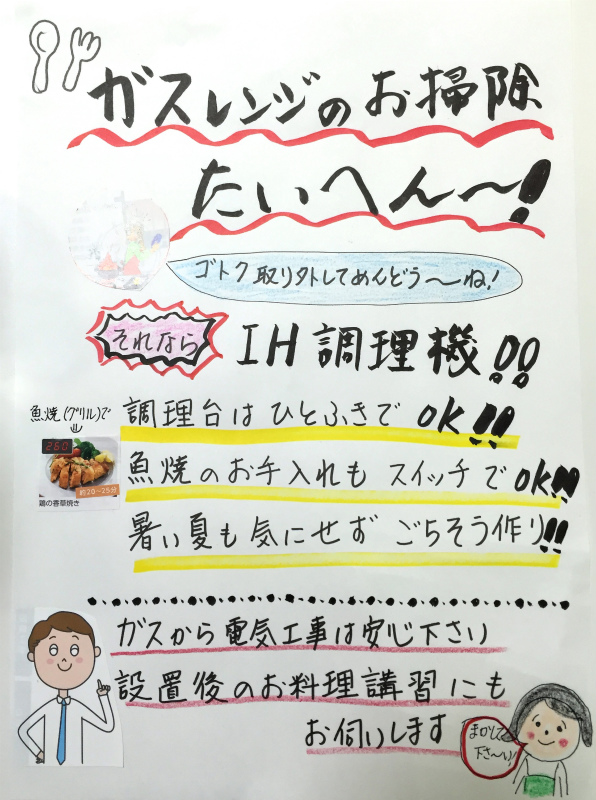 ガスレンジのお掃除
たいへん〜!
ゴトク取り外してめんどう〜ね!
それなら
IH調理機!!
魚焼(グリル)で
調理台はひとふきでOK!!
260
約20〜25分
鶏の香草焼き
魚焼のお手入れもスイッチでOK!!
暑い夏も気にせずごちそう作り!!
ガスから電気工事は安心下さい
設置後のお料理講習にも
お伺いします
まかして
下さ〜い!